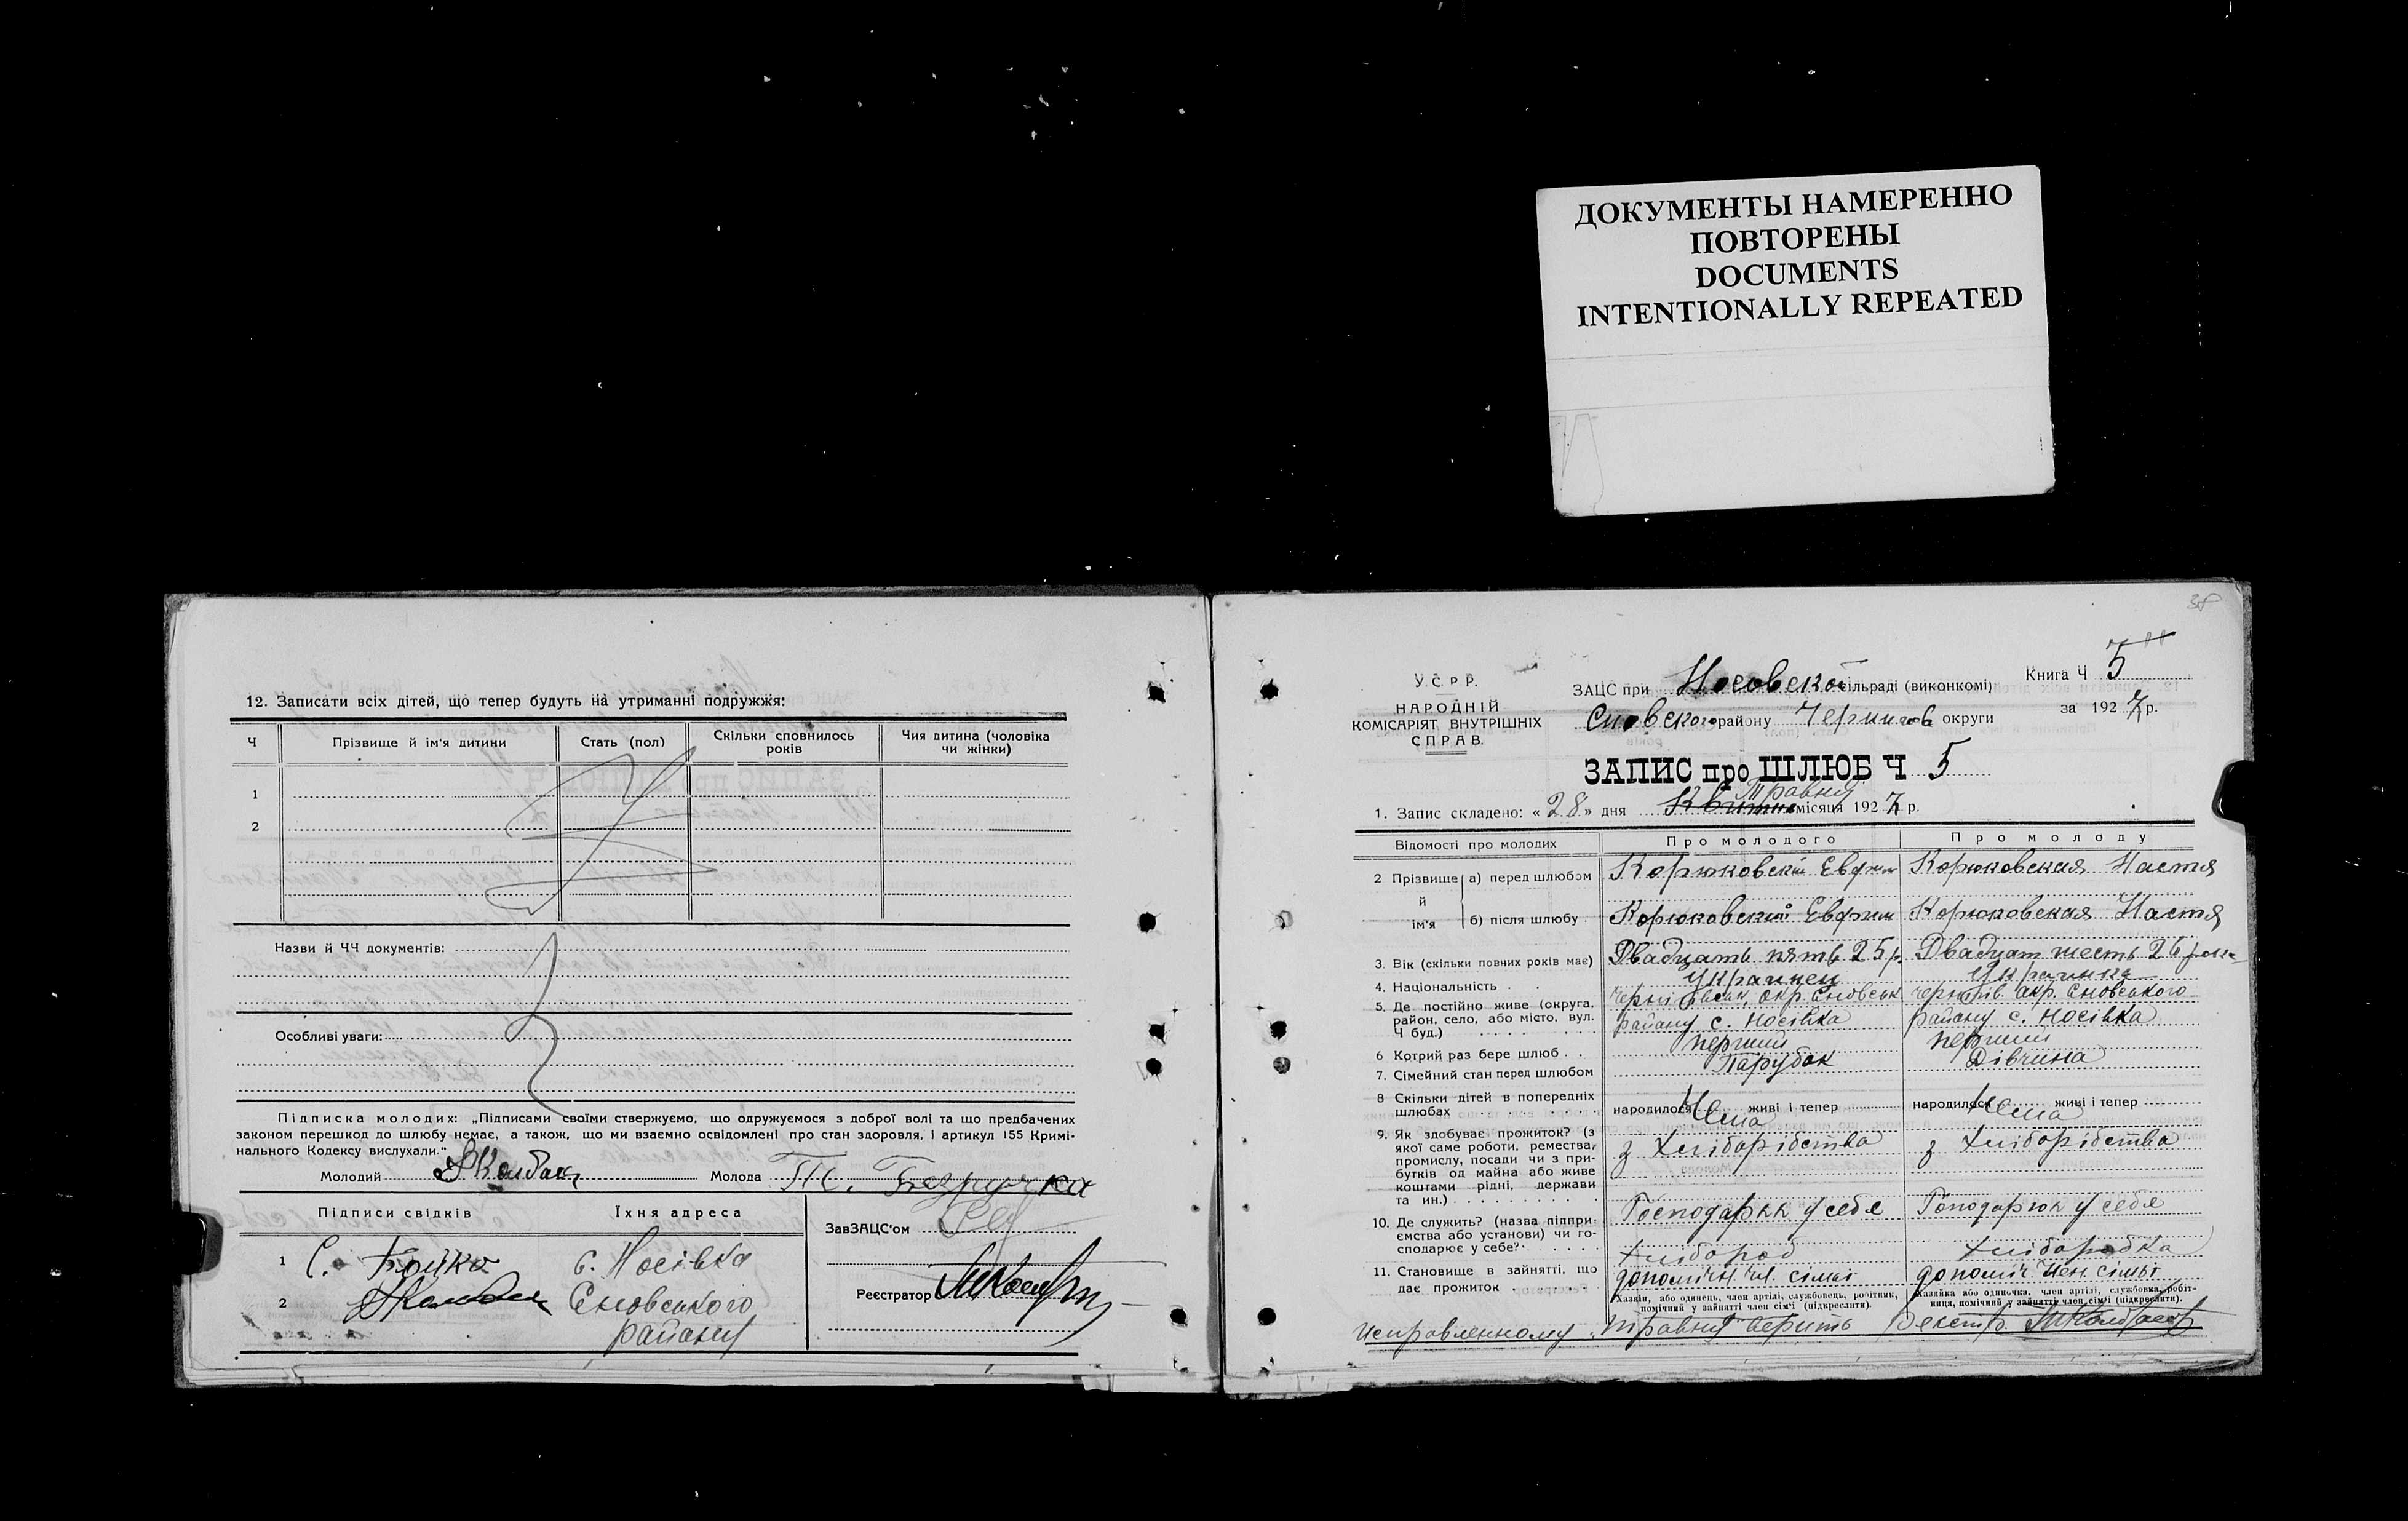 ДОКУМЕНТЫ НАМЕРЕННО
ПОВТОРЕНЫ
DOCUMENTS
INTENTIONALLY REPEATED
12. Записати всіх дітей, що тепер будуть на утриманні подружжя:
Ч Прізвище й ім'я дитини Стать (пол) Скільки сповнилось років Чия дитина (чоловіка чи жінки)
1
2
Назви й ЧЧ документів:
Особливі уваги:
Підписка молодих: „Підписами своїми стверджуємо, що одружуємося з доброї волі та що предбачених
законом перешкод до шлюбу немає, а також, що ми взаємно освідомлені про стан здоровля, і артикул 155 Кримі-
нального Кодексу вислухали."
Молодий Молода Т. Безручка
Підписи свідків Їхня адреса
ЗавЗАЦС'ом
1 С. Бойко с. Носівка
2 Сновського
Реєстратор
району
38
У.С.Р.Р.
НАРОДНІЙ
КОМІСАРІЯТ ВНУТРІШНІХ
СПРАВ.
ЗАЦС при Носовской сільраді (виконкомі)
Сновского району Чернигов округи
Книга Ч 5
за 1927 р.
ЗАПИС про ШЛЮБ Ч 5
Травня
1. Запис складено: «28» дня Квитня місяця 1927 р.
Відомості про молодих Про молодого Про молоду
2 Прізвище й ім'я а) перед шлюбом Корюковский Евфим Корюковская Настя
б) після шлюбу Корюковский Евфим Корюковская Настя
3. Вік (скільки повних років має) Двадцать пять 25 р. Двадцат шесть 26 рок
4. Національність Украинец Украинка
5. Де постійно живе (округа, район, село, або місто, вул. Ч буд.) Чернігівськ. окр. Сновськ району с. Носівка Чернігів. окр. Сновського району с. Носівка
6 Котрий раз бере шлюб перший перший
7. Сімейний стан перед шлюбом Парубок Дівчина
8 Скільки дітей в попередніх шлюбах народилося живі і тепер Нема народилося живі і тепер Нема
9. Як здобуває прожиток? (з якої саме роботи, ремества, промислу, посади чи з прибутків од майна або живе коштами рідні, держави та ин.) з хліборобства з хліборобства
10. Де служить? (назва підпри-
ємства або установи) чи го-
сподарює у себе? у себе хлібороб у себе хліборобка
11. Становище в зайнятті, що
дає прожиток допоміжн. чл. сімьї допоміч. член. сімьї
Хазяїн, або одинець, член артілі, службовець, робітник,
помічний у зайнятті член сім'ї (підкреслити).
Хазяйка або одиночка, член артілі, службовка, робіт-
ниця, помічний у зайнятті член сім'ї (підкреслити).
Исправленному „травня" верить